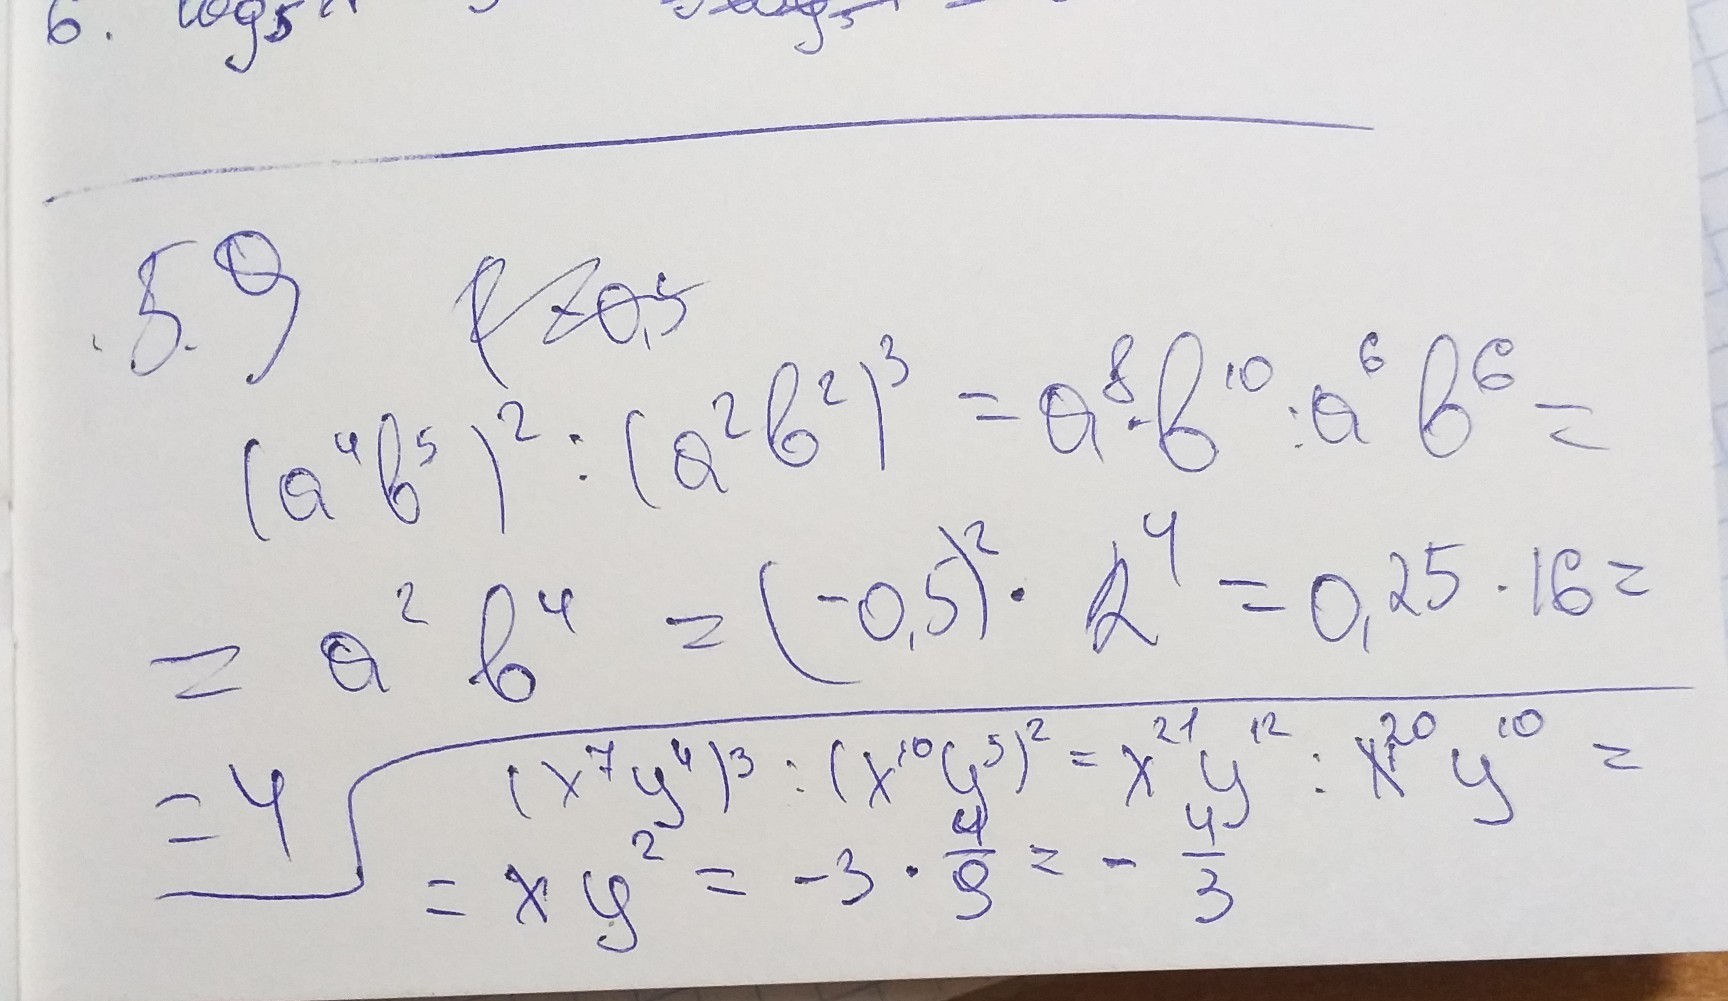 6. log₅
5.9
(a⁴b⁵)² : (a²b²)³ = a⁸·b¹⁰ : a⁶ b⁶ =
= a² b⁴ = (-0,5)² · 2⁴ = 0,25 · 16 =
= 4
(x⁷y⁴)³ : (x¹⁰y⁵)² = x²¹y¹² : x²⁰y¹⁰ =
= x y² = -3 · 4/9 = - 4/3